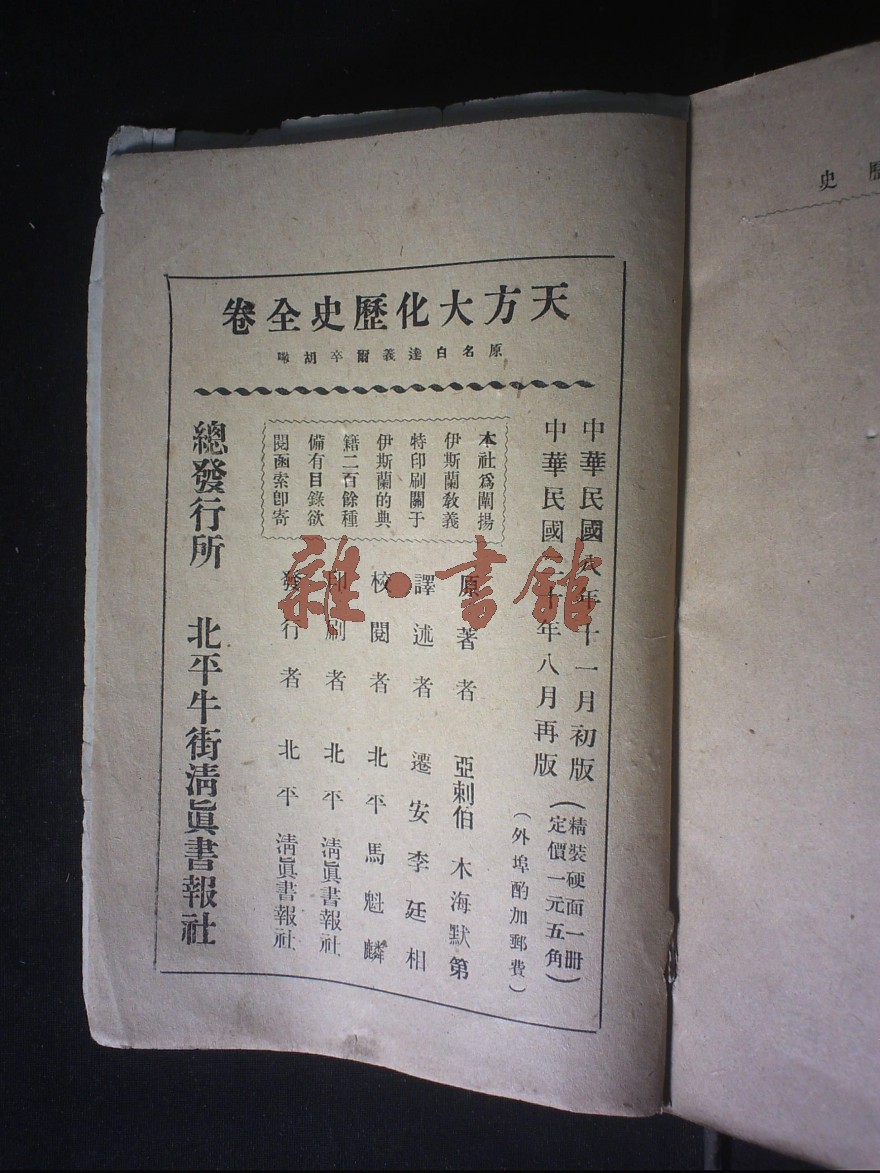 天方大化歷史全卷
原名白達義爾卒胡
中華民國八年十一月初版
中華民國二十年八月再版
(精裝硬面一冊
定價一元五角)
(外埠酌加郵費)
本社爲闡揚
伊斯蘭教義
特印刷關于
伊斯蘭的典
籍二百餘種
備有目錄欲
閱函索卽寄
原著者 亞剌伯 木海默第
譯述者 遷安李廷相
校閱者 北平馬魁麟
印刷者 北平 淸眞書報社
發行者 北平 淸眞書報社
總發行所 北平牛街淸眞書報社
歷史
雜·書館